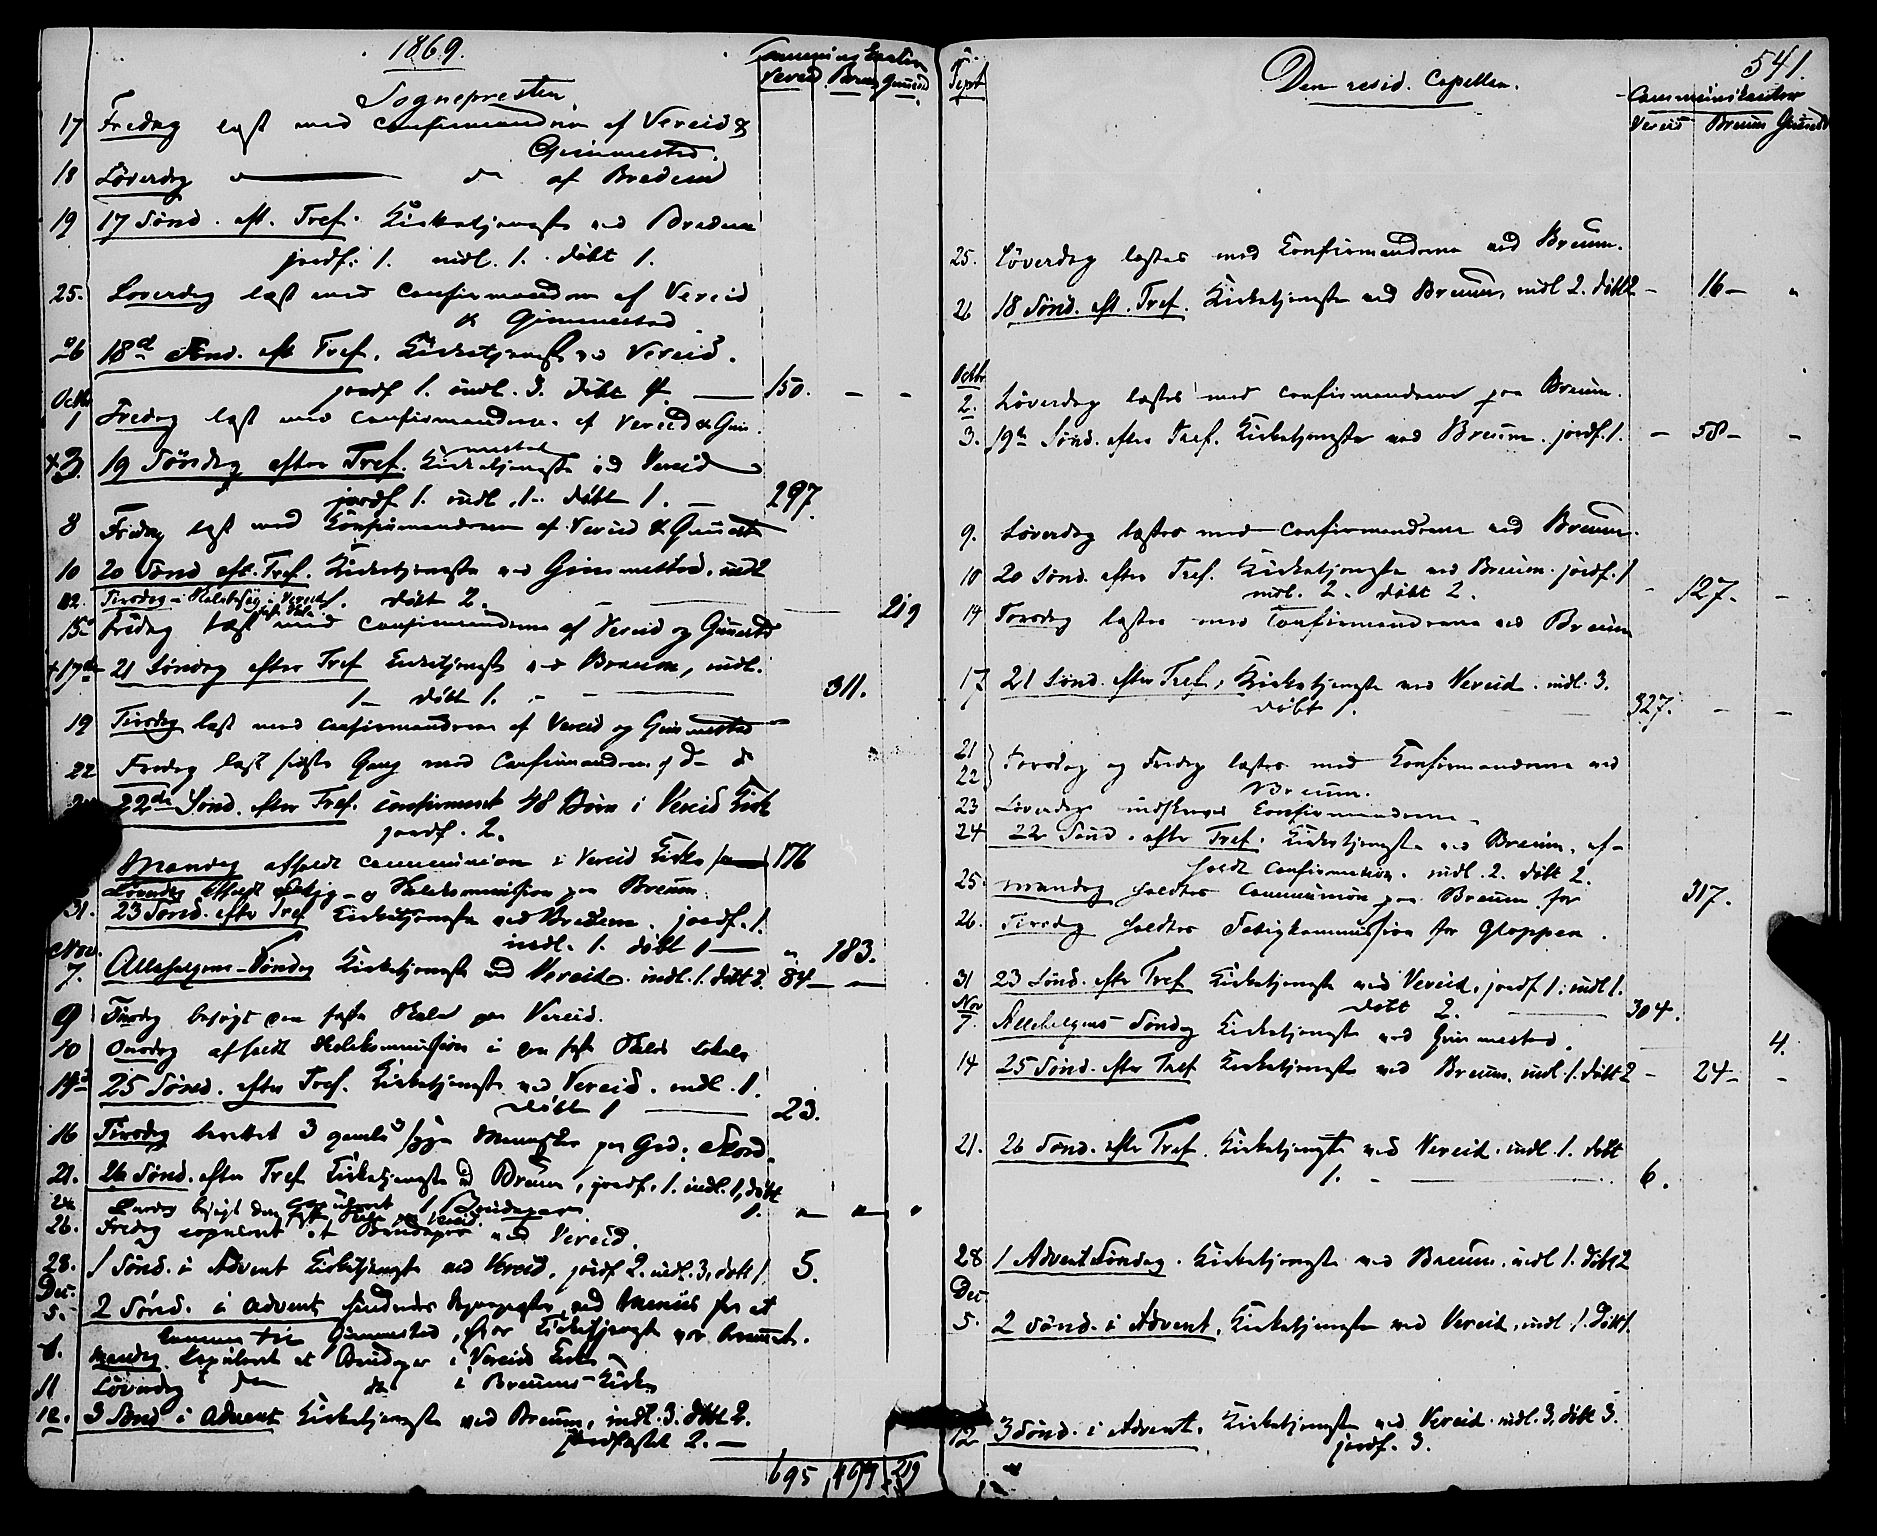 1869.
Sognepresten
Vereid Breum Gimmestad
17 Fredag læst med Confirmanderne af Vereid &
Gimmestad.
18 Löverdag do af Bredem
19 17 Sönd. eft. Tref. Kirketjeneste ved Bredem
jordf. 1. indl. 1. döbt 1.
25. Loverdag læst med Confirmanderne af Vereid
& Gimmestad
26 18d Sönd. eft Tref. Kirketjeneste ved Vereid.
jordf 1. indl. 3. döbt 4. — 150. — -
Octbr
1 Fredag læst med Confirmanderne af Vereid & Gim
mestad
3. 19 Söndag efter Tref. Kirketjeneste ved Vereid
jordf 1. indl. 1. döbt 1. — 297.
8 Fredag læst med Confirmanderne af Vereid & Gimest
10 20 Sönd eft. Tref. Kirketjeneste ved Gimmestad. indl
1. döbt 2. — 219
12. Tirsdag i Vereid
15 Fredag læst med Confirmanderne af Vereid og Gimestd
17de 21 Söndag efter Tref Kirketjeneste ved Breum, indl.
1 - döbt 1. - 311.
19 Tirsdag læst med Confirmanderne af Vereid og Gimmestad
22 Fredag læst sidste Gang med Confirmanderne af do do
22de Sönd. efter Tref. Confirmeret 48 Börn i Vereid Kirke
jordf. 2.
Mandag afholdt Communion i Vereid Kirke 176
Löverdag afholdt Fattig- og Skolekommission paa Breum.
31. 23 Sönd. efter Tref Kirketjeneste ved Bredem. jordf. 1.
indl. 1. döbt 1 — „ 183.
Nov.
7. Allehelgens-Söndag Kirketjeneste ved Vereid. indl. 1. döbt 3. 84 — —
9 Tirsdag besögt den faste Skole paa Vereid.
10 Onsdag afholdt Skolekommission i den faste Skoles Lokale
14d 25 Sönd. efter Tref. Kirketjeneste ved Vereid. indl. 1.
döbt 1 — 23.
16 Tirsdag berettet 3 gamle syge Mennesker paa Grd. Skord.
21. 26 Sönd. efter Tref Kirketjeneste ved Breum, jordf. 1. indl. 1, döbt
1. „ „ „
24 besögt den faste Skole paa Vereid.
26. Fredag copuleret et Brudepar ved Vereid.
28. 1 Sönd. i Advent Kirketjeneste ved Vereid. jordf 2. indl. 3. döbt 1. 5.
Dec.
5. 2 Sönd. i Advent ved for at
komme til Gimmestad, hvor Kirketjeneste var
6. Mandag Kopuleret et Brudepar i Vereids Kirke
11 Löverdag do do i Breums Kirke
12. 3 Sönd i Advent Kirketjeneste ved Breum. indl. 3. döbt 2.
jordfæstet 2. —
695 219
541.
Den resid. Capellan.
Communikanter
Vereid Breum Gimestd
Sept
25. Löverdag læstes med Confirmanderne ved Breum.
26 18 Sönd. eft. Tref. Kirketjeneste ved Breum. indl 2. döbt 2 - 16 - „
Octbr
2. Löverdag læstes med Confirmanderne paa Breum.
3. 19de Sönd. efter Tref. Kirketjeneste ved Breum. jordf. 1. - 58 - -
9. Löverdag læstes med Confirmanderne ved Breum.
10 20 Sönd. efter Tref. Kirketjeneste ved Breum. jordf. 1
indl. 2. döbt 2. - 127. -
14 Torsdag læstes med Confirmanderne ved Breum
17 21 Sönd. efter Tref, Kirketjeneste ved Vereid. indl. 3.
döbt 1. 327. - -
21
22 } Torsdag og Fredag læstes med Confirmanderne ved
Breum.
23 Löverdag indskreves Confirmanderne.
24 22 Sönd. efter Tref. Kirketjeneste ved Breum. af-
holdt Confirmation. indl. 2. döbt 2.
25. Mandag holdtes Communion paa Breum for 317.
26. Tirsdag holdtes Fatigkommission for Gloppen.
31 23 Sönd. efter Tref Kirketjeneste ved Vereid. jordf 1. indl 1.
döbt 2. 304.
Nov
7. Allehelgens Söndag Kirketjeneste ved Gimmestad. 4.
14 25 Sönd. efter Tref Kirketjeneste ved Breum. indl. 1. döbt 2 - 24 - -
21. 26 Sönd. efter Tref. Kirketjeneste ved Vereid. indl. 1. döbt
1. - 6.
28 1 Advent Söndag. Kirketjeneste ved Breum. indl 1. döbt 2
Dec.
5. 2 Sönd. i Advent. Kirketjeneste ved Vereid. indl. 1. döbt 1.
12 3 Sönd. i Advent. Kirketjeneste ved Vereid. indl. 3. döbt 3.
jordf. 3.